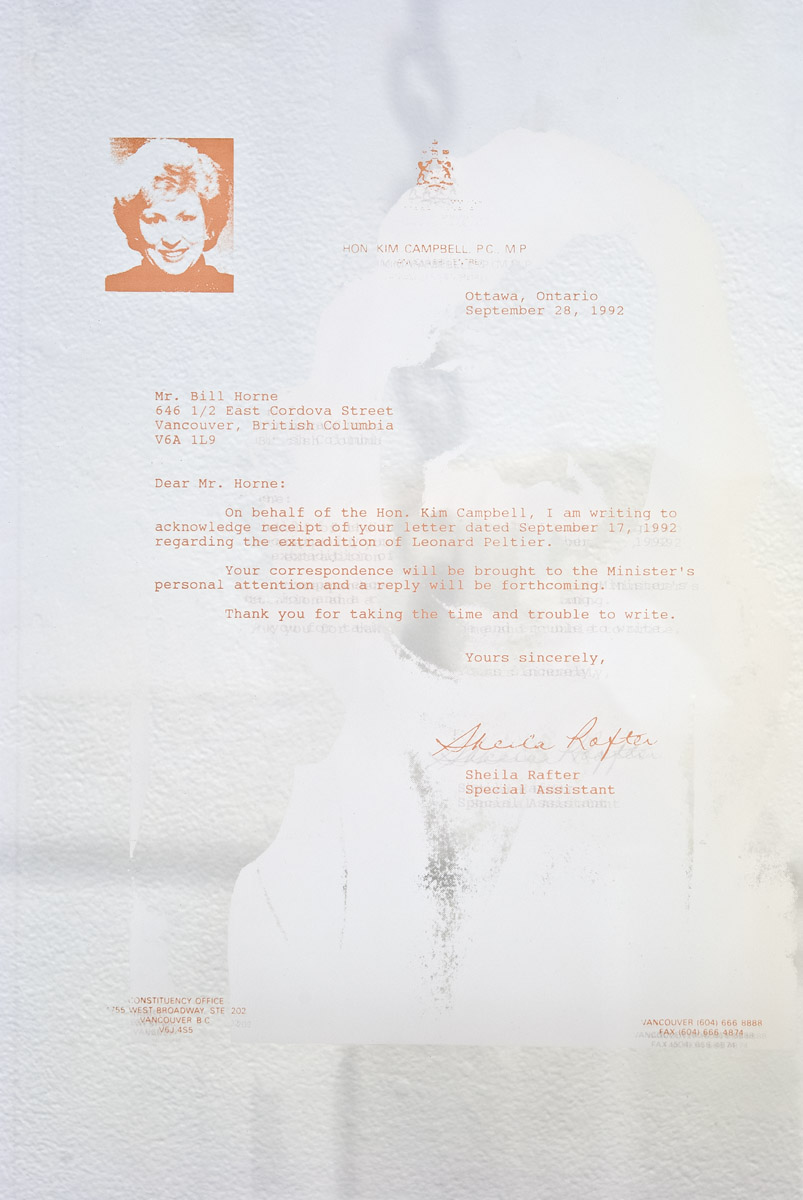 HON. KIM CAMPBELL, P.C., M.P.
VANCOUVER CENTRE
Ottawa, Ontario
September 28, 1992
Mr. Bill Horne
646 1/2 East Cordova Street
Vancouver, British Columbia
V6A 1L9
Dear Mr. Horne:
On behalf of the Hon. Kim Campbell, I am writing to
acknowledge receipt of your letter dated September 17, 1992
regarding the extradition of Leonard Peltier.
Your correspondence will be brought to the Minister's
personal attention and a reply will be forthcoming.
Thank you for taking the time and trouble to write.
Yours sincerely,
Sheila Rafter
Sheila Rafter
Special Assistant
CONSTITUENCY OFFICE
WEST BROADWAY, STE. 202
VANCOUVER B.C.
V6J 4S5
VANCOUVER (604) 666 8888
FAX (604) 666-4874